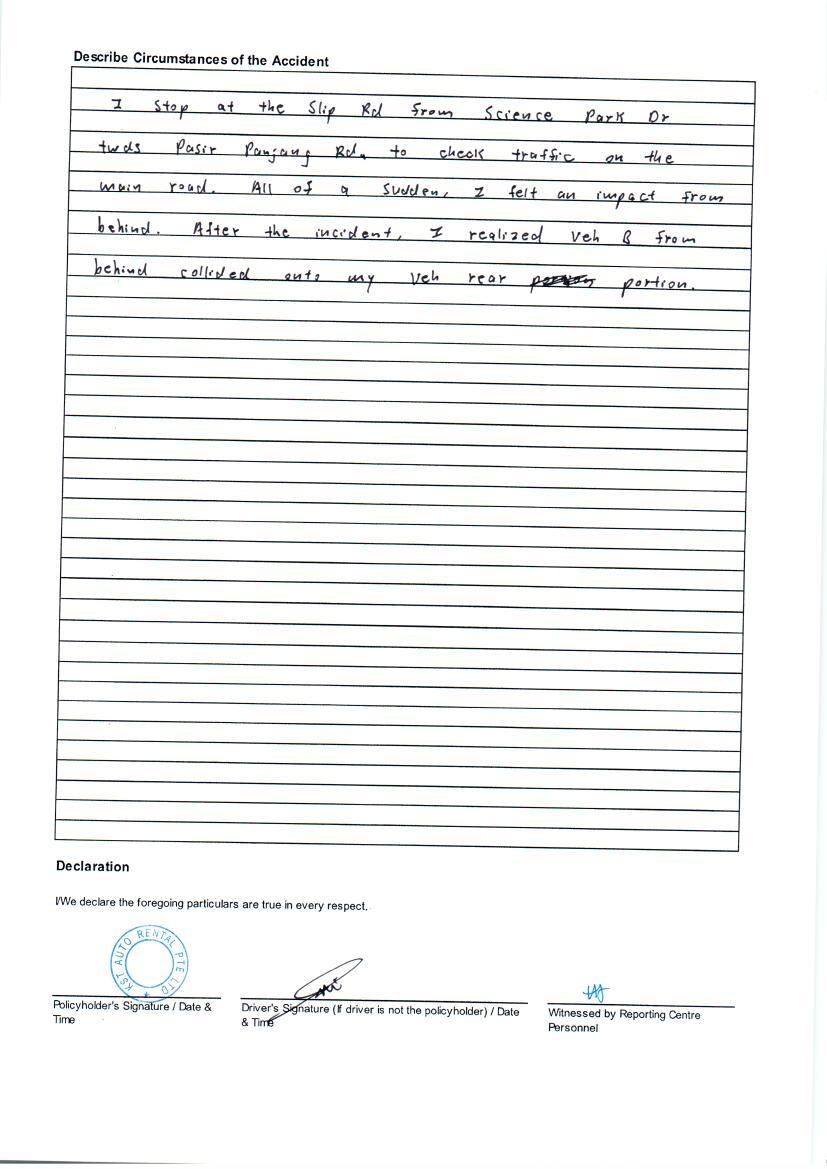 Describe Circumstances of the Accident
I Stop at the Slip Rd from Science Park Dr
twds Pasir Panjang Rd, to check traffic on the
main road. All of a sudden, I felt an impact from
behind. After the incident, I realized Veh B from
behind collided onto my Veh rear portion.
Declaration
I/We declare the foregoing particulars are true in every respect.
KST AUTO RENTAL PTE LTD
Policyholder's Signature / Date &
Time
Driver's Signature (If driver is not the policyholder) / Date
& Time
Witnessed by Reporting Centre
Personnel